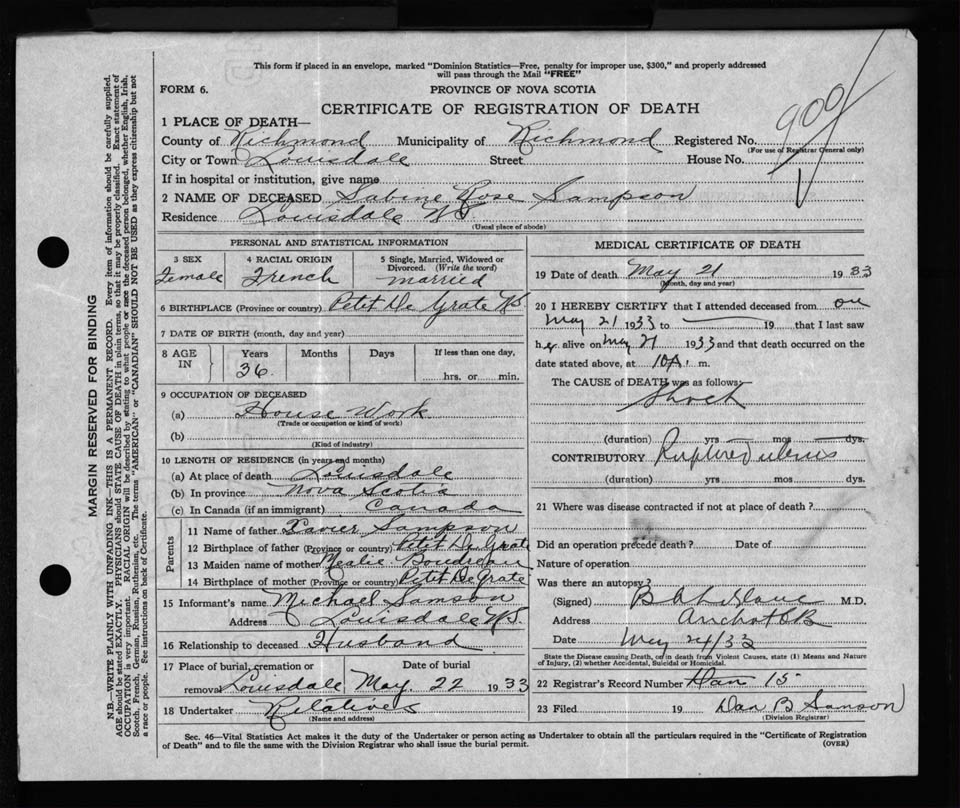 This form if placed in an envelope, marked "Dominion Statistics—Free, penalty for improper use, $300," and properly addressed
will pass through the Mail "FREE"
FORM 6.
PROVINCE OF NOVA SCOTIA
CERTIFICATE OF REGISTRATION OF DEATH
900
1 PLACE OF DEATH—
County of Richmond Municipality of Richmond Registered No.
(For use of Registrar General only)
City or Town Louisdale Street House No.
If in hospital or institution, give name
2 NAME OF DECEASED Sabine Rose Sampson
Residence Louisdale NS
(Usual place of abode)
PERSONAL AND STATISTICAL INFORMATION
3 SEX Female
4 RACIAL ORIGIN French
5 Single, Married, Widowed or Divorced. (Write the word) married
6 BIRTHPLACE (Province or country) Petit De Grate NS
7 DATE OF BIRTH (month, day and year)
8 AGE IN Years Months Days If less than one day,
36 hrs. or min.
9 OCCUPATION OF DECEASED
(a) House Work
(Trade or occupation or kind of work)
(b)
(Kind of industry)
10 LENGTH OF RESIDENCE (in years and months)
(a) At place of death Louisdale
(b) In province Nova Scotia
(c) In Canada (if an immigrant) Canada
Parents
11 Name of father Xavier Sampson
12 Birthplace of father (Province or country) Petit De Grate
13 Maiden name of mother
14 Birthplace of mother (Province or country) Petit De Grate
15 Informant's name Michael Samson
Address Louisdale NS.
16 Relationship to deceased Husband
17 Place of burial, cremation or removal Louisdale Date of burial May. 22 1933
18 Undertaker Relatives
(Name and address)
MEDICAL CERTIFICATE OF DEATH
19 Date of death May 21 1933
(Month, day and year)
20 I HEREBY CERTIFY that I attended deceased from on
May 21 1933 to — 19 that I last saw
her alive on May 21 1933 and that death occurred on the
date stated above, at 10 A. m.
The CAUSE OF DEATH was as follows:
Shock
(duration) yrs mos dys.
CONTRIBUTORY Ruptured uterus
(duration) yrs. mos dys.
21 Where was disease contracted if not at place of death?
Did an operation precede death? Date of
Nature of operation
Was there an autopsy?
(Signed) M.D.
Address Arichat CB
Date May 24/33
State the Disease causing Death, or in death from Violent Causes, state (1) Means and Nature
of Injury, (2) whether Accidental, Suicidal or Homicidal.
22 Registrar's Record Number 15
23 Filed 19 Dan B Samson
(Division Registrar)
Sec. 46—Vital Statistics Act makes it the duty of the Undertaker or person acting as Undertaker to obtain all the particulars required in the "Certificate of Registration
of Death" and to file the same with the Division Registrar who shall issue the burial permit.
(OVER)
MARGIN RESERVED FOR BINDING
N.B.—WRITE PLAINLY WITH UNFADING INK—THIS IS A PERMANENT RECORD. Every item of information should be carefully supplied.
AGE should be stated EXACTLY. PHYSICIANS should STATE CAUSE OF DEATH in plain terms, so that it may be properly classified. Exact statement of
OCCUPATION is very important. RACIAL ORIGIN will be described by stating to what people or race the deceased person belonged, whether English, Irish,
Scotch, French, German, Russian, Ruthenian, etc. The terms "AMERICAN" or "CANADIAN" SHOULD NOT BE USED as they express citizenship but not
a race or people. See instructions on back of Certificate.